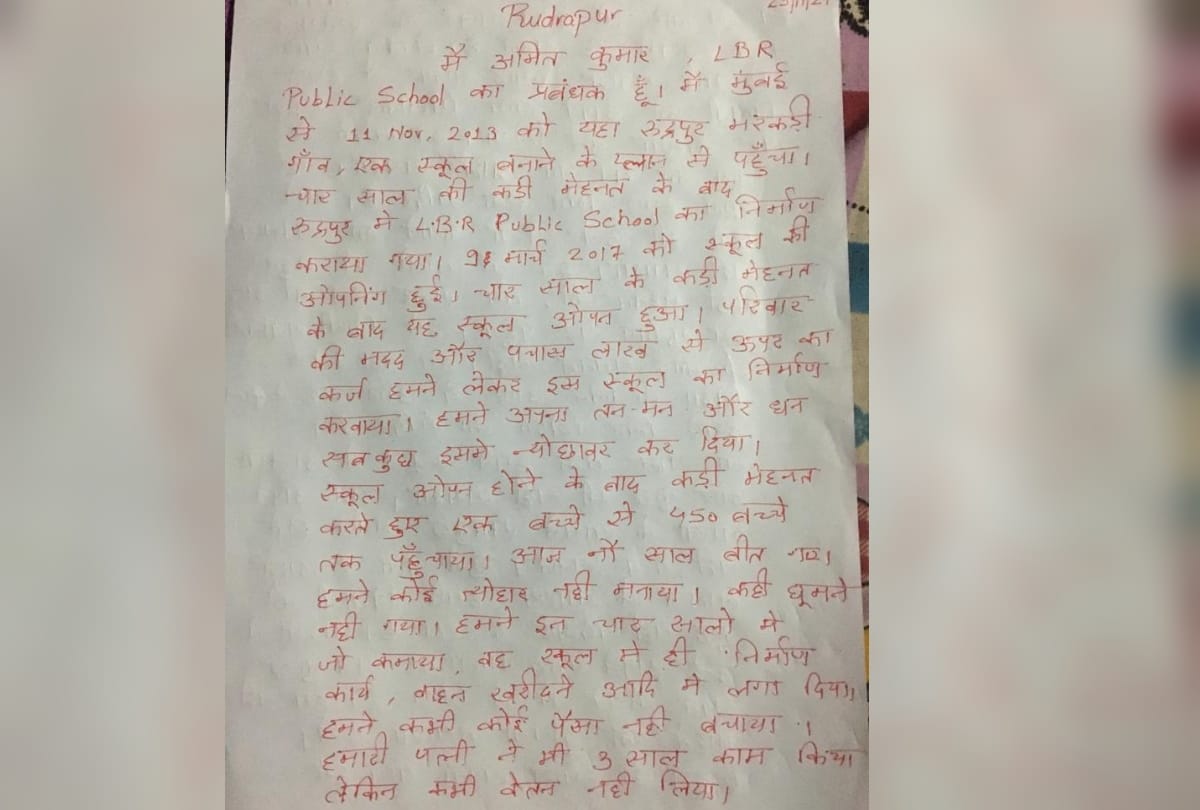 Rudrapur
मै अमित कुमार , LBR
Public School का प्रबंधक हूँ। मै मुंबई
से 11 Nov. 2013 को यहा रुद्रपुर मरकड़ी
गाँव, एक स्कूल बनाने के प्लान से पहुँचा।
चार साल की कडी मेहनत के बाद
रुद्रपुर मे L.B.R Public School का निर्माण
कराया गया। मार्च 2017 को स्कूल की
ओपनिंग हुई। चार साल के कडी मेहनत
के बाद यह स्कूल ओपन हुआ। परिवार
की मदद और पचास लाख से ऊपर का
कर्ज हमने लेकर इस स्कूल का निर्माण
करवाया। हमने अपना तन-मन और धन
सबकुछ इसमे न्योछावर कर दिया।
स्कूल ओपन होने के बाद कड़ी मेहनत
करते हुए एक बच्चे से 450 बच्चे
तक पहुँचाया। आज नौ साल बीत गए।
हमने कोई त्योहार नही मनाया। कही घूमने
नही गया। हमने इन चार सालो मे
जो कमाया, वह स्कूल मे ही निर्माण
कार्य, वाहन खरीदने आदि मे लगा दिया।
हमने कभी कोई पैसा नही बचाया।
हमारी पत्नी ने भी 3 साल काम किया
लेकिन कभी वेतन नही लिया।